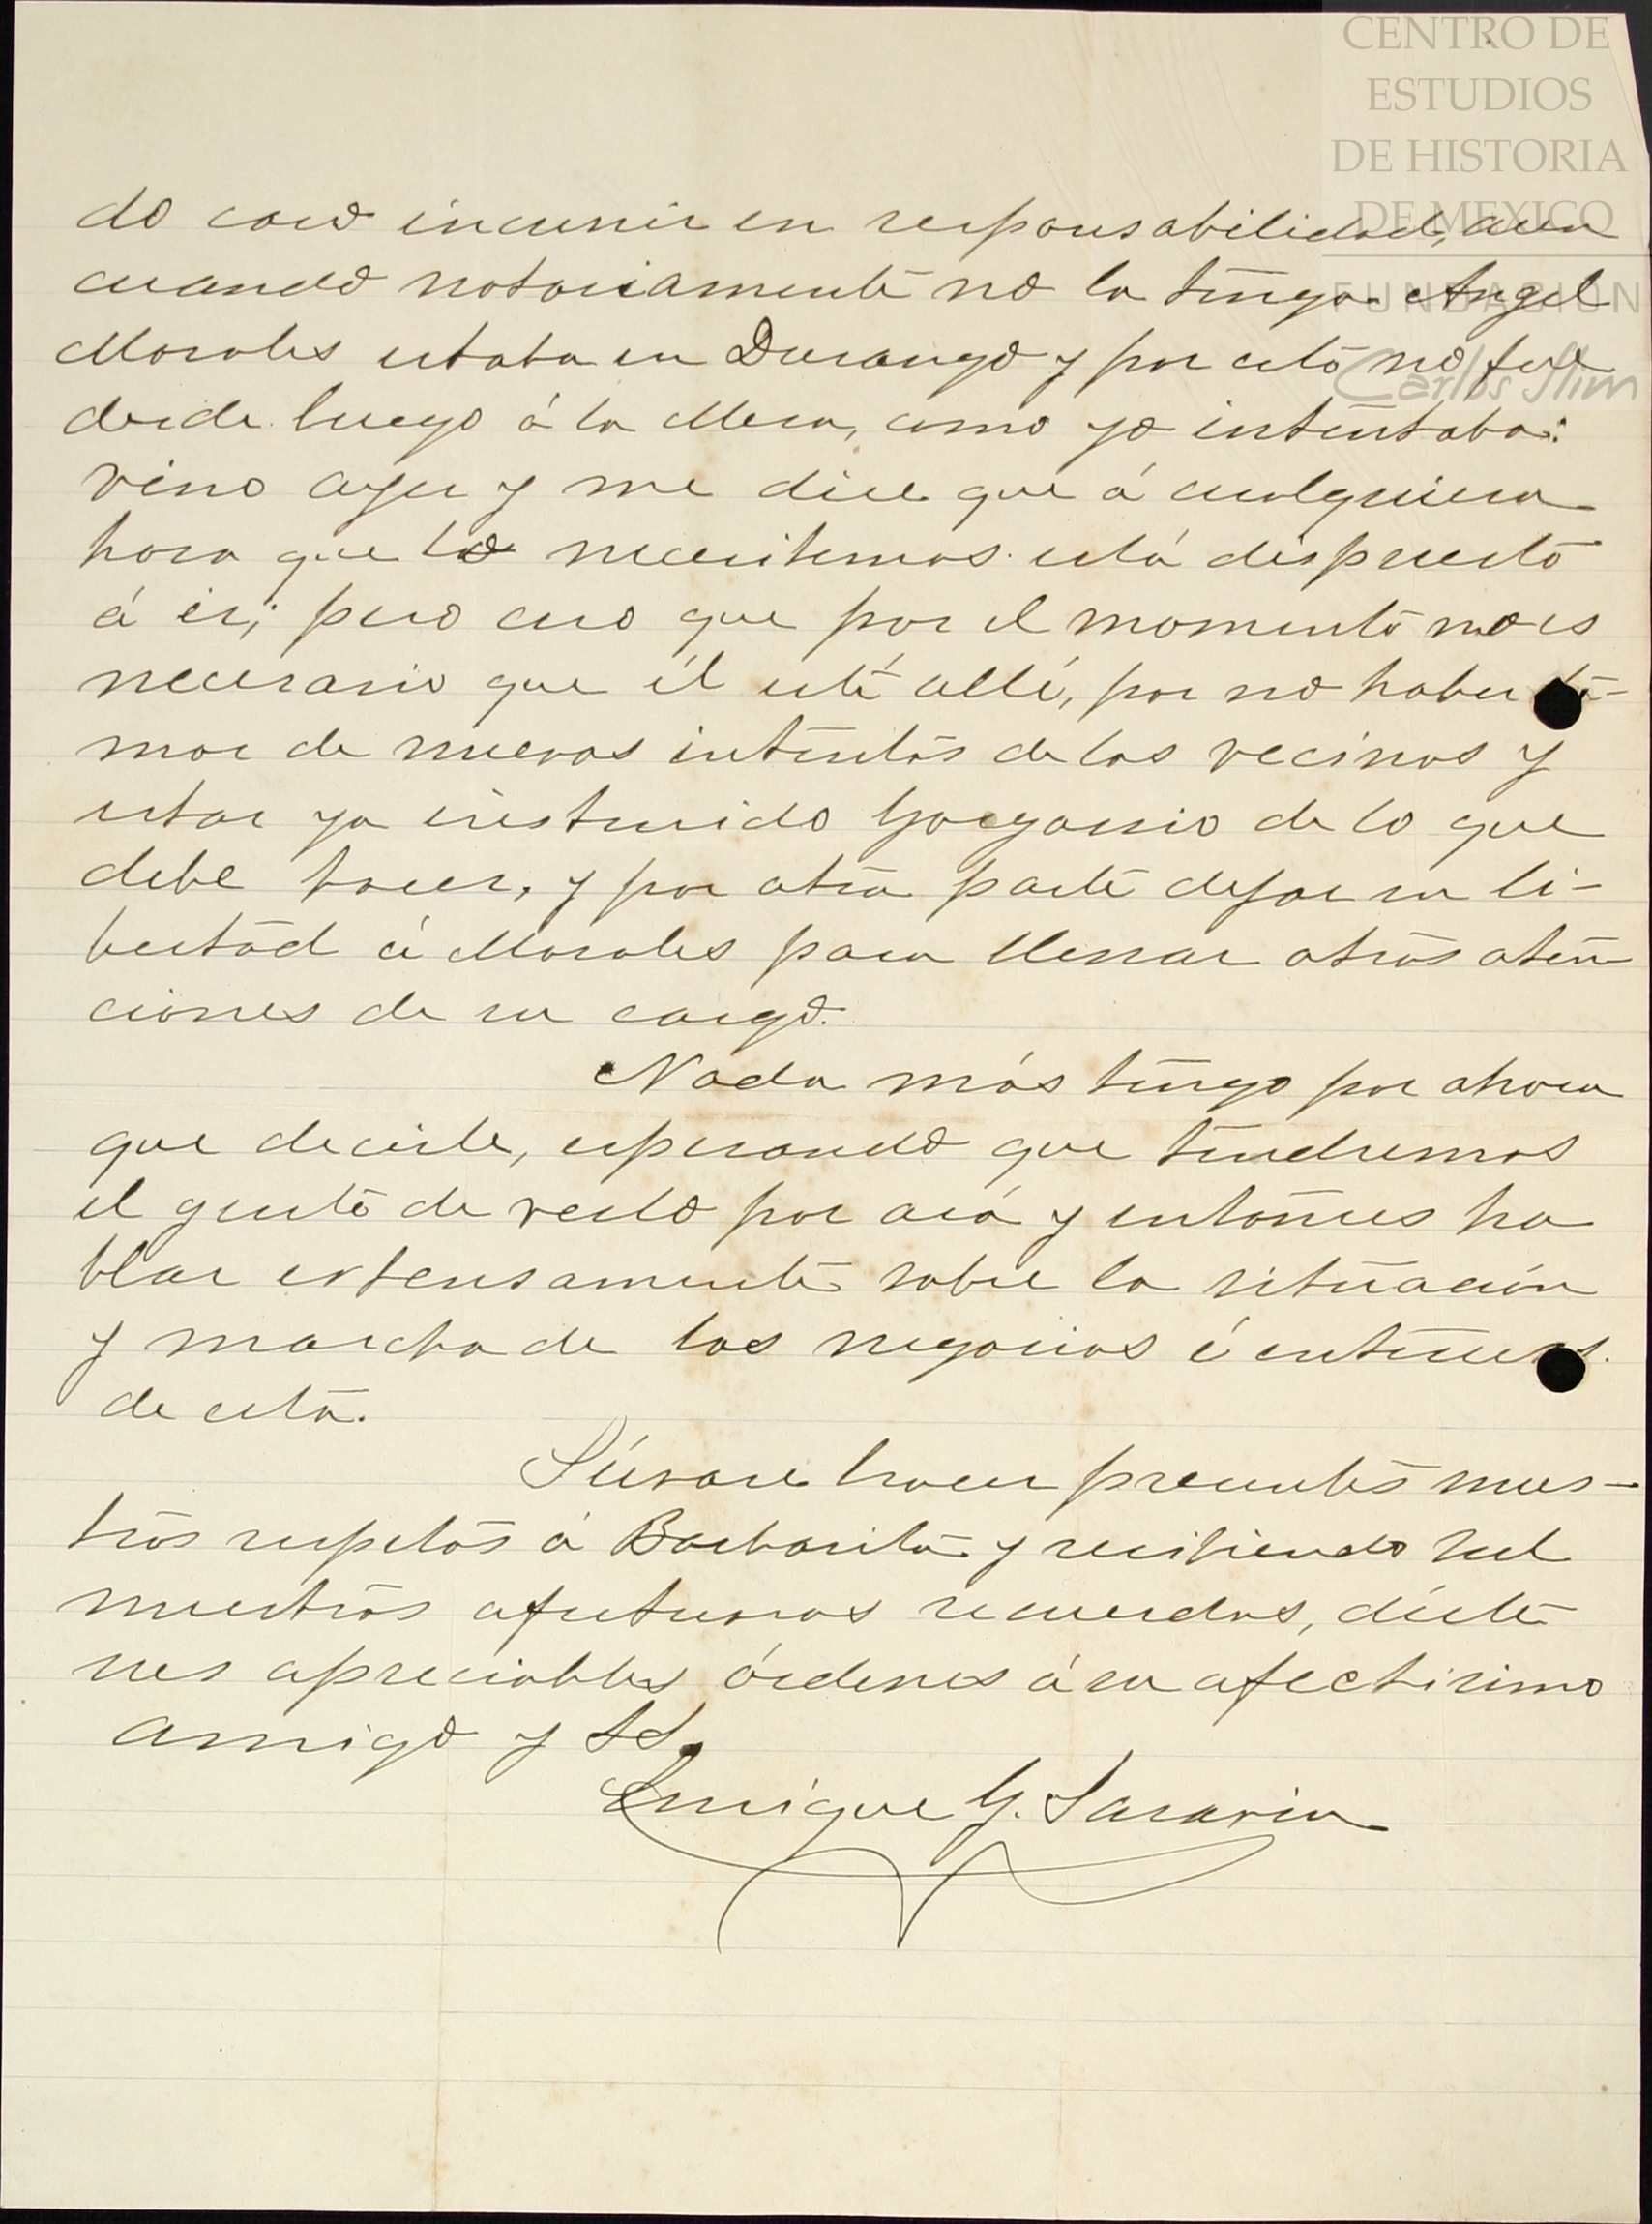 CENTRO DE
ESTUDIOS
DE HISTORIA
DE MEXICO
FUNDACIÓN
Carlos Slim
do caso incurrir en responsabilidad, aun
cuando notoriamente no la tenga. Angel
Morales estaba en Durango y por esto no fue
desde luego á la Mesa, como yo intentaba:
vino ayer y me dice que á cualquiera
hora que lo necesitemos está dispuesto
á ir; pero creo que por el momento no es
necesario que él esté allí, por no haber te-
mor de nuevos intentos de los vecinos y
estar ya instruido Gorgonio de lo que
debe hacer, y por otra parte dejar en li-
bertad á Morales para llenar otras aten
ciones de su cargo.
Nada más tengo por ahora
que decirle, esperando que tendremos
el gusto de verlo por acá y entonces ha
blar extensamente sobre la situación
y marcha de los negocios é intereses
de esta.
Sírvase hacer presentes nues-
tros respetos á Barbarita y recibiendo Ud
nuestros afectuosos recuerdos, dicte
sus apreciables órdenes á su afectisimo
amigo y SS.
Enrique G. Saravia